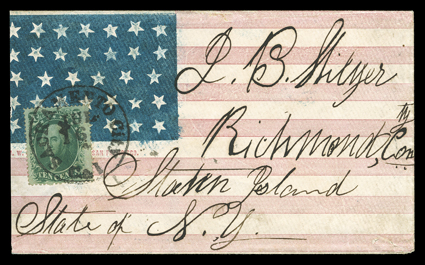 J. B. Hilyer
Richmond, Coun
ty
Staten Island
State of N.Y.
TEN CENTS